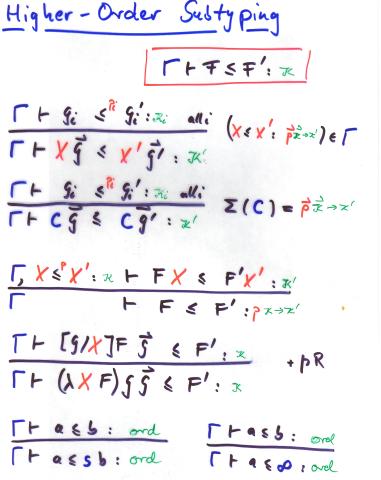 Higher-Order Subtyping
Γ ⊢ F ≤ F' : κ
Γ ⊢ Gi ≤^pi Gi' : κi all i
Γ ⊢ X G⃗ ≤ X' G⃗' : κ'
(X ≤ X' : p⃗ κ⃗ → κ') ∈ Γ
Γ ⊢ Gi ≤^pi Gi' : κi all i
Γ ⊢ C G⃗ ≤ C G⃗' : κ'
Σ(C) = p⃗ κ⃗ → κ'
Γ, X ≤^p X' : κ ⊢ F X ≤ F' X' : κ'
Γ ⊢ F ≤ F' : p κ → κ'
Γ ⊢ [G/X]F G⃗ ≤ F' : κ
Γ ⊢ (λ X F) G G⃗ ≤ F' : κ
+ βR
Γ ⊢ a ≤ b : ord
Γ ⊢ a ≤ s b : ord
Γ ⊢ a ≤ b : ord
Γ ⊢ a ≤ ∞ : ord